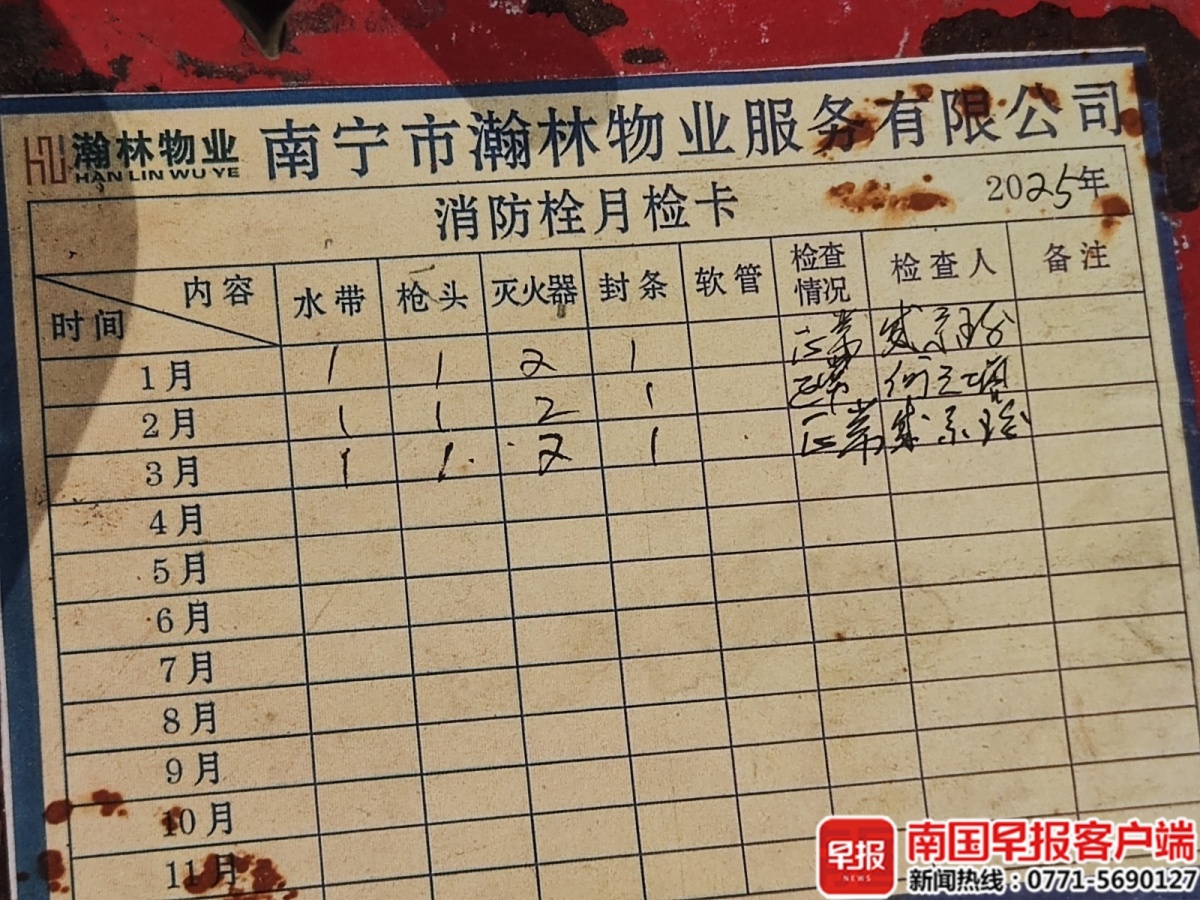 瀚林物业 南宁市瀚林物业服务有限公司
HAN LIN WU YE
消防栓月检卡 2025年
内容 时间 水带 枪头 灭火器 封条 软管 检查情况 检查人 备注
1月 1 1 2 1 正常
2月 1 1 2 1 正常
3月 1 1 2 1 正常
4月
5月
6月
7月
8月
9月
10月
11月
早报 南国早报客户端
NEWS 新闻热线:0771-5690127